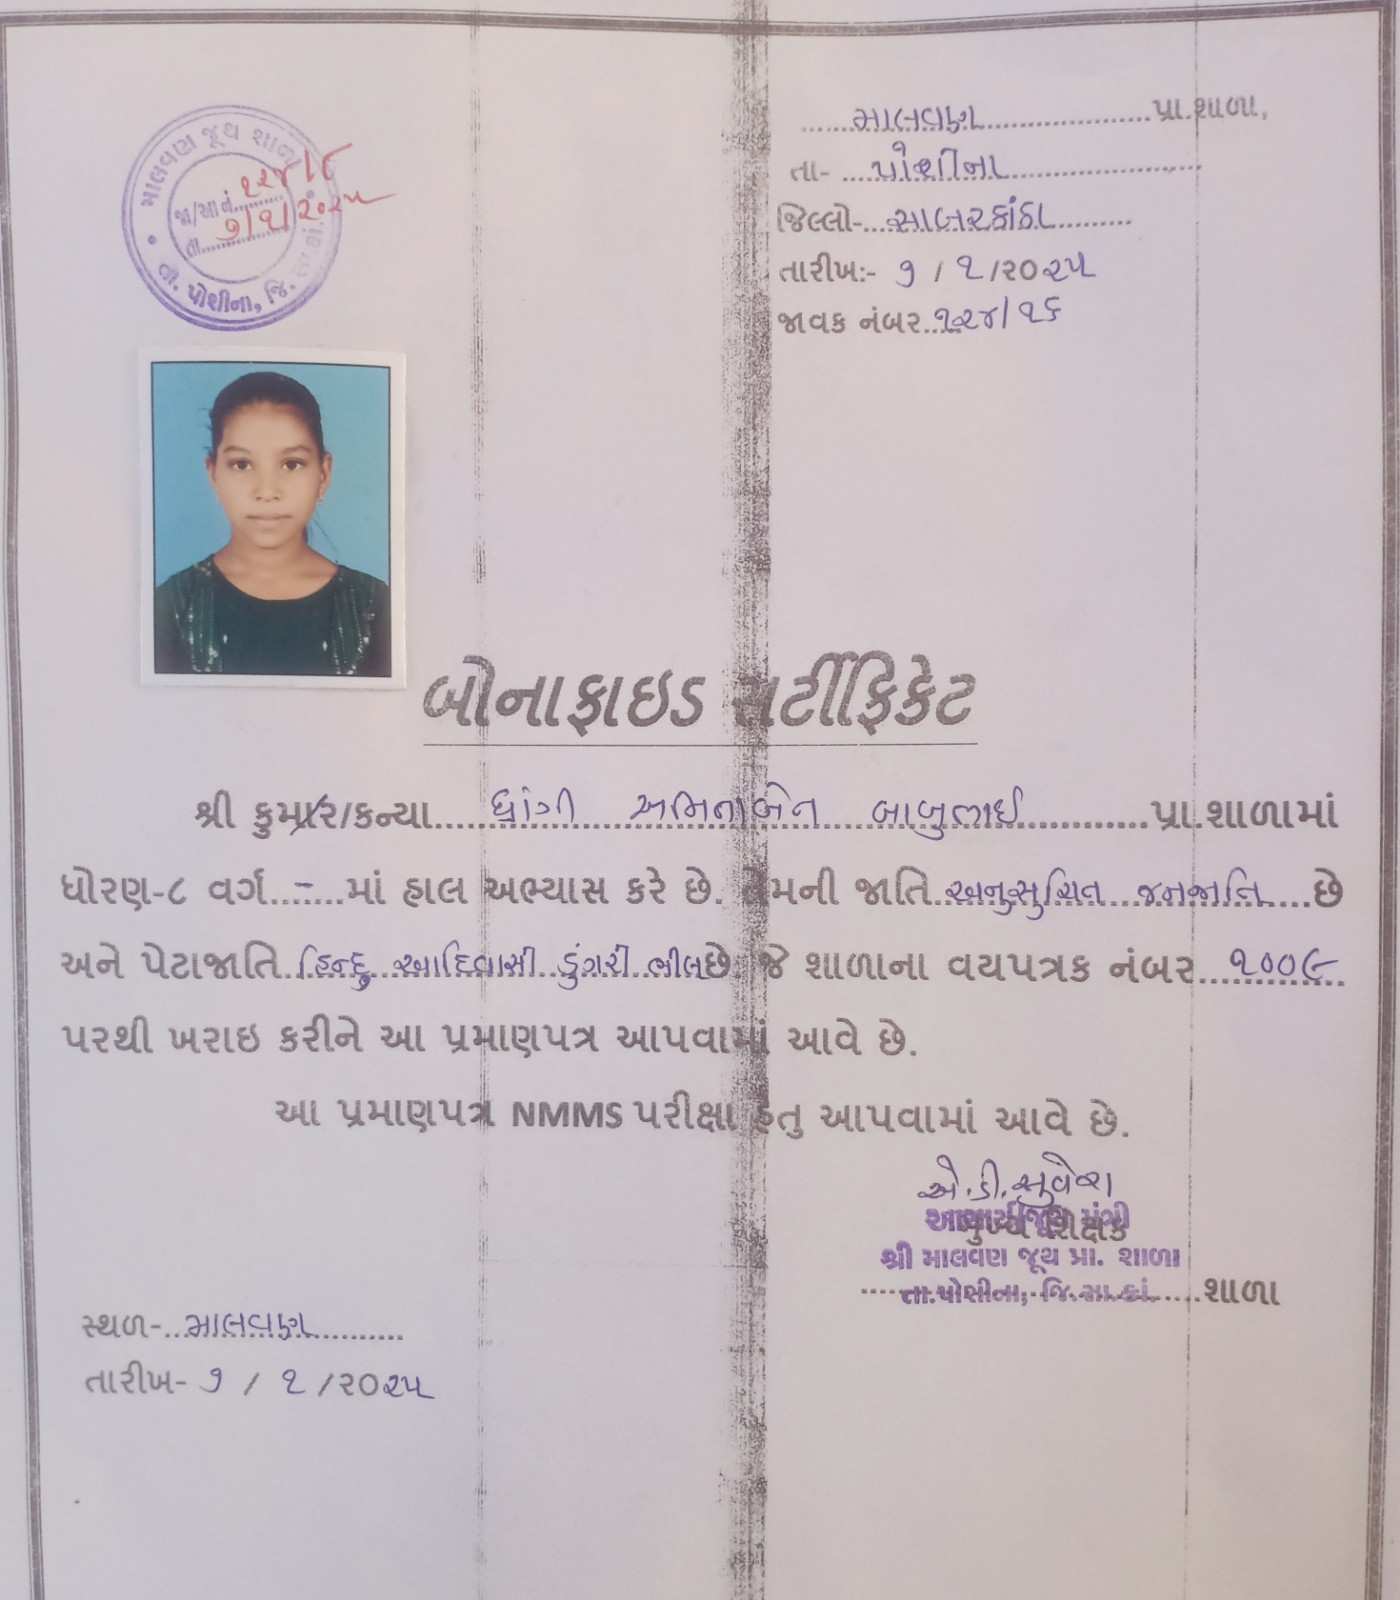 માલવણ જૂથ શાળા
જા/આ નં. ૧૨૪/૬
તા. ૭/૧/૨૦૨૫
તા. પોશીના, જિ. સા.કાં.
......માલવણ..................પ્રા.શાળા,
તા- ....પોશીના.....................
જિલ્લો-...સાબરકાંઠા.........
તારીખ:- ૭ / ૧ /૨૦૨૫
જાવક નંબર..૧૨૪/૧૬
બોનાફાઇડ સર્ટીફિકેટ
શ્રી કુમાર/કન્યા......ધ્રાંગી અમિનાબેન બાબુભાઈ............પ્રા.શાળામાં
ધોરણ-૮ વર્ગ...-....માં હાલ અભ્યાસ કરે છે. તેમની જાતિ..અનુસુચિત જનજાતિ....છે
અને પેટાજાતિ..હિન્દુ આદિવાસી ડુંગરી ભીલ છે. જે શાળાના વયપત્રક નંબર...૧૦૦૯
પરથી ખરાઇ કરીને આ પ્રમાણપત્ર આપવામાં આવે છે.
આ પ્રમાણપત્ર NMMS પરીક્ષા હેતુ આપવામાં આવે છે.
એ.ડી.સુવેરા
મુખ્ય શિક્ષક
શ્રી માલવણ જૂથ પ્રા. શાળા
તા.પોસીના, જિ.સા.કાં......શાળા
સ્થળ-...માલવણ..........
તારીખ- ૭ / ૧ /૨૦૨૫